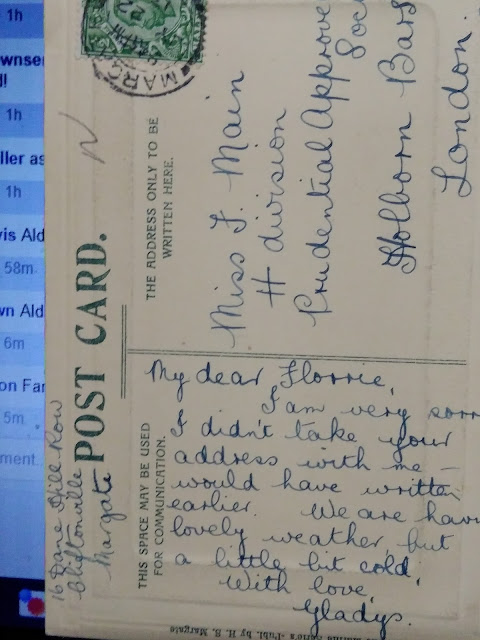 1h
wnser
!
1h
ller as
1h
vis Ald
58m
wn Ald
6m
on Far
5m
ment.
MARG
POST CARD.
THE ADDRESS ONLY TO BE
WRITTEN HERE.
Miss F. Main
H division
Prudential Approve
Soc
Holborn Bars
London.
16 Dane Hill Row
Cliftonville
Margate
THIS SPACE MAY BE USED
FOR COMMUNICATION.
My dear Florrie,
I am very sorr
I didn't take your
address with me —
would have written
earlier. We are havi
lovely weather, but
a little bit cold.
With love,
Gladys.
Publ. by H. S. Margate